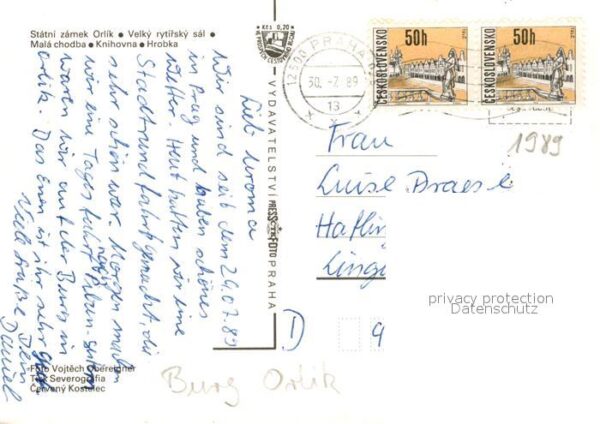 Státní zámek Orlík • Velký rytířský sál •
Malá chodba • Knihovna • Hrobka
Kčs 0,20
Liebe
Wir sind seit dem 29.07.89
in Prag und haben schönes
Wetter. Heut hatten wir eine
Stadtrundfahrt gemacht, die
sehr schön war. Morgen machen
wir eine Tagesfahrt nach
waren wir auf der Burg in
Orlik. Das Essen ist ihr sehr gut.
Viele Grüße Dein
Daniel
VYDAVATELSTVÍ PRESSFOTO PRAHA
Foto Vojtěch Obereigner
Text Severografia
Červený Kostelec
12000 PRAHA
30.-7.89
13
50h
ČESKOSLOVENSKO
50h
ČESKOSLOVENSKO
1989
Frau
Luise
D
9
privacy protection
Datenschutz
Burg Orlik